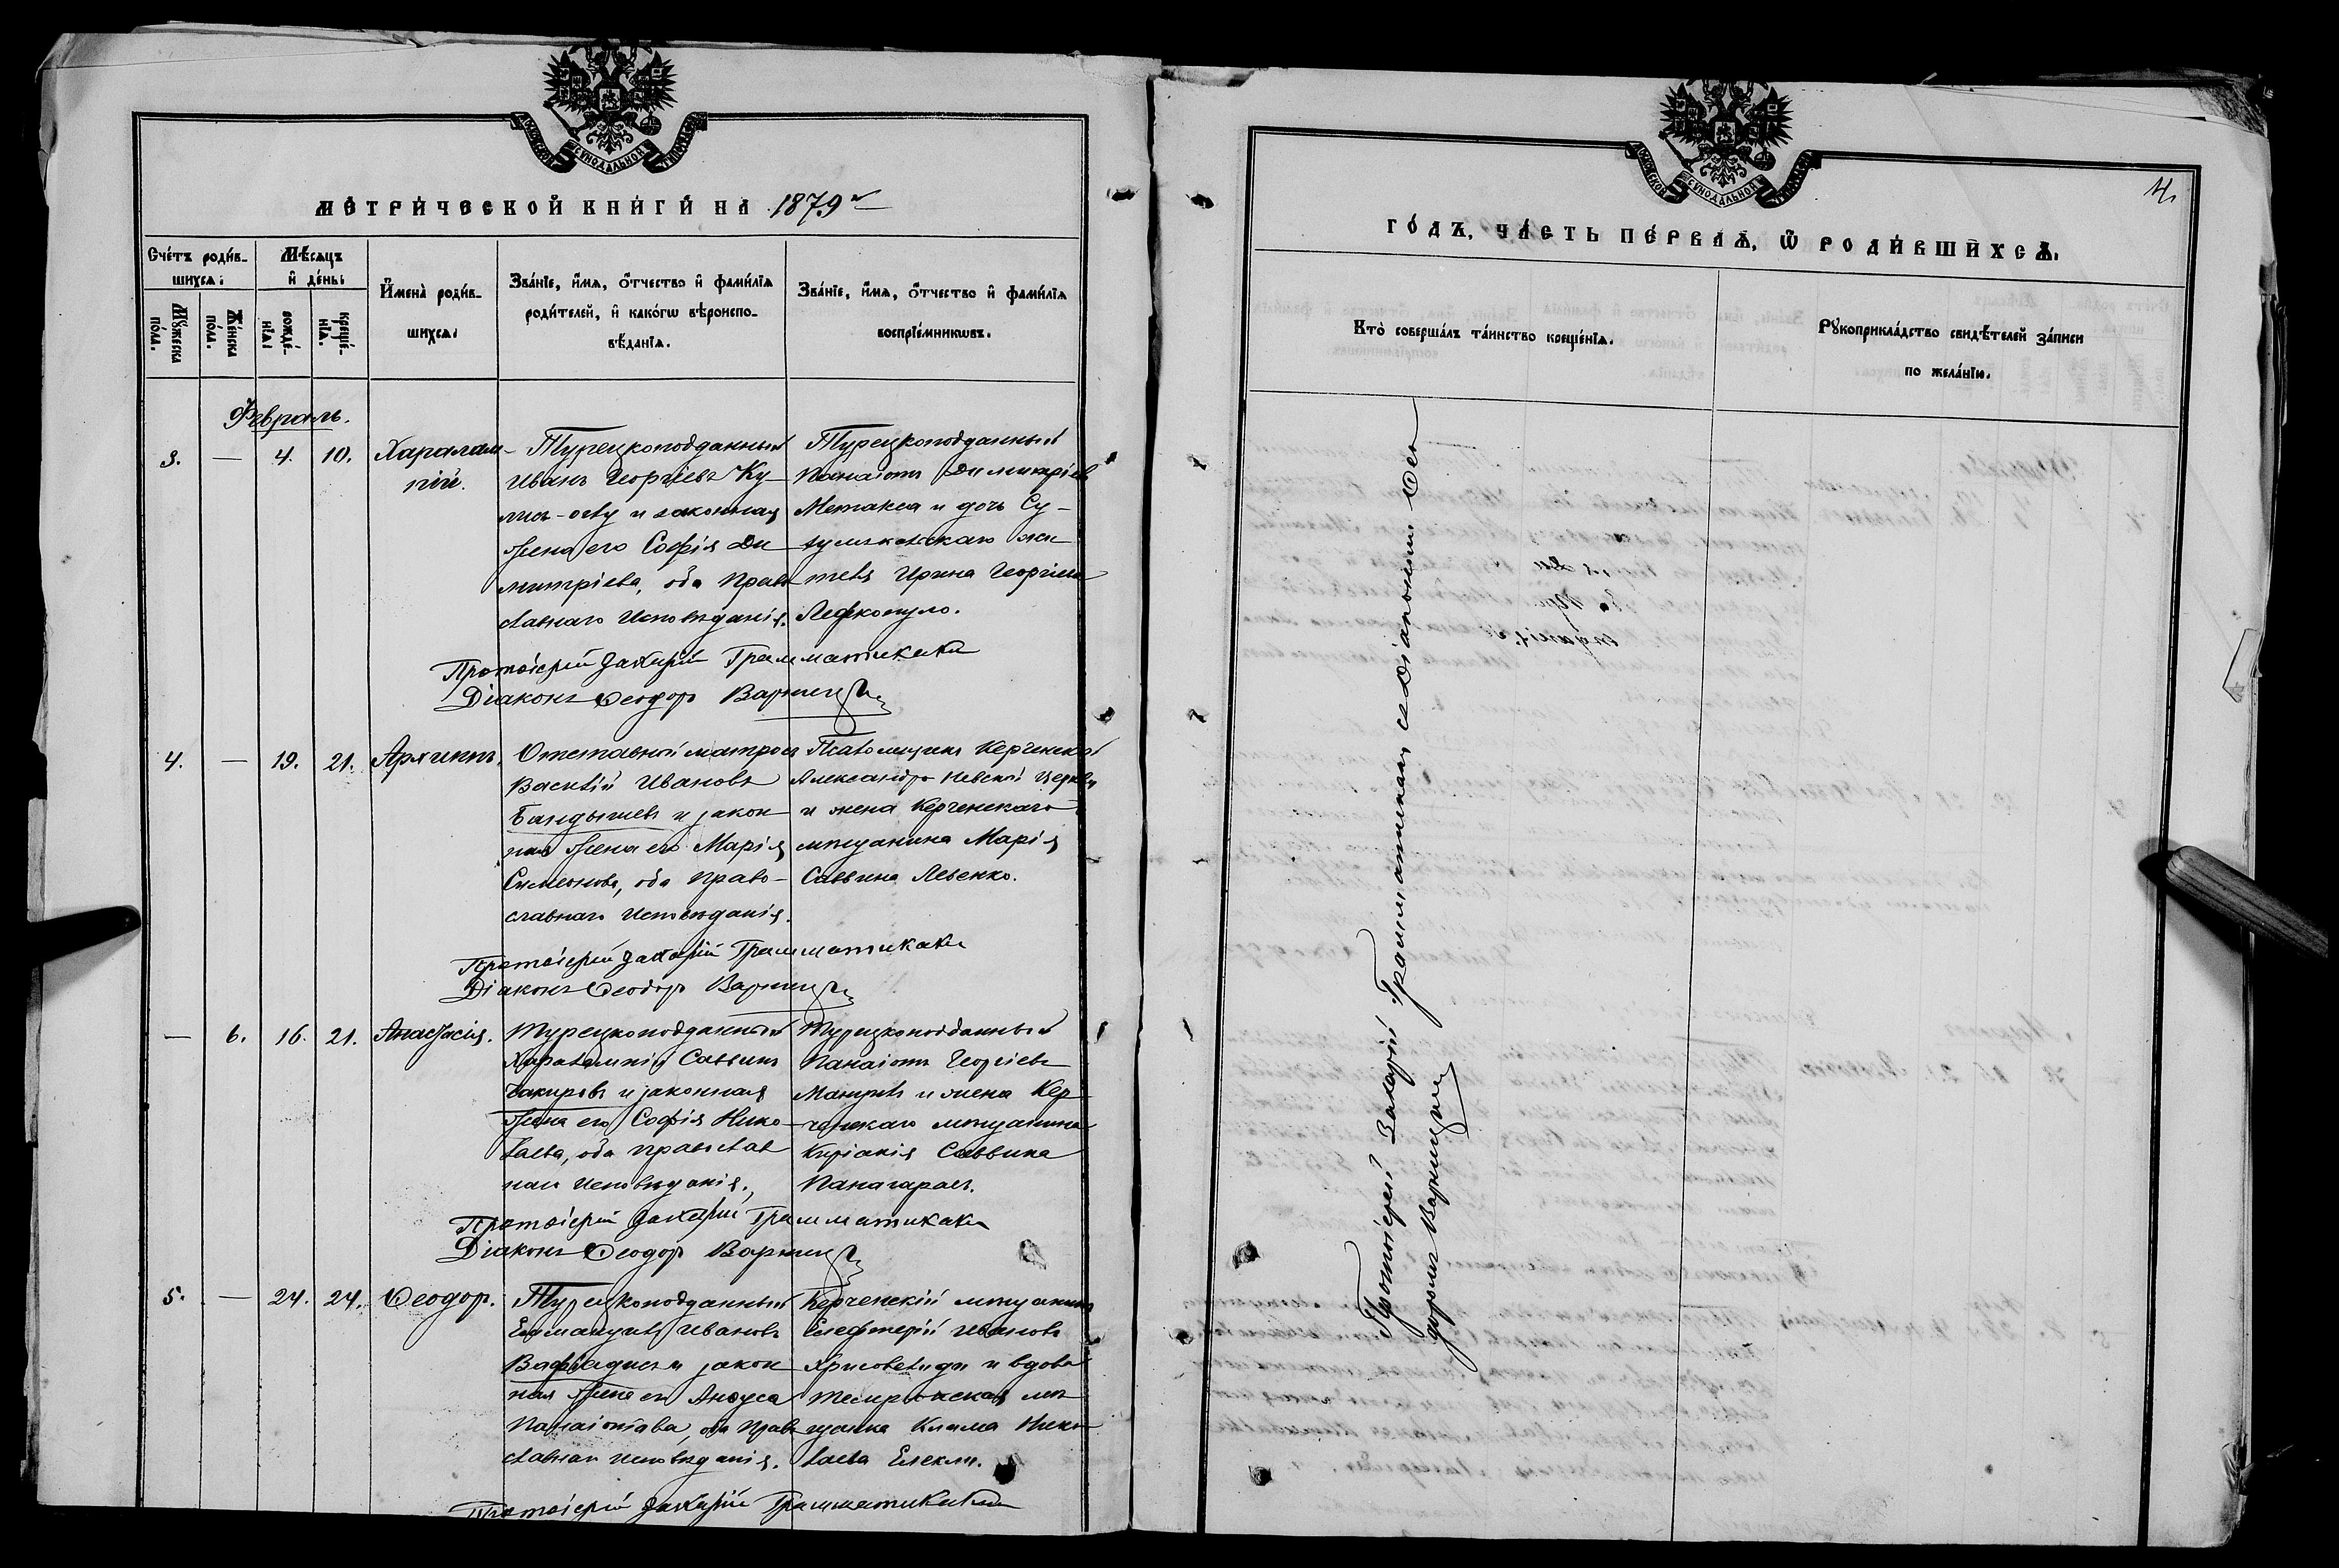 МОСКОВСКОЙ СѴНОДАЛЬНОЙ ТИПОГРАФІИ
МЕТРИ́ЧЕСКОЙ КНИ́ГИ НА 1879 г
Сче́тъ роди́в-
шихсѧ:
Мѣ́сѧцъ
и҆ де́нь:
Мꙋ́жеска
по́ла.
Же́нска
по́ла.
рожде́-
нїѧ:
креще́-
нїѧ.
И҆мена̀ роди́в-
шихсѧ:
Зва́нїе, и҆́мѧ, ѻ҆́тчество и҆ фами́лїѧ
роди́телей, и҆ како́гѡ вѣроиспо-
вѣ́данїѧ.
Зва́нїе, и҆́мѧ, ѻ҆́тчество и҆ фами́лїѧ
воспрїе́мникѡвъ.
Февраль.
3. — 4. 10. Харалам-
пій.
Турецкоподданный
Иванъ Георгіевъ Ку-
и законная
жена его Софія Ди
митріева, оба Право
славнаго Исповѣданія.
Турецкоподданный
Панаіотъ Димитріевъ
Метакса и дочь Су-
жи
теля Ирина Георгіева
Лефкопуло.
Протоіерей Захарій Грамматикаки
Діаконъ Ѳеодоръ Варницкій
4. — 19. 21. Архиппъ.
Отставной матросъ
Василій Ивановъ
и закон
ная жена его Марія
Симеонова, оба Право-
славнаго Исповѣданія.
Псаломщикъ Керченской
Александро Невской Церкви
и жена Керченскаго
мѣщанина Марія
Саввина Левенко.
Протоіерей Захарій Грамматикаки
Діаконъ Ѳеодоръ Варницкій
— 6. 16. 21. Анастасія.
Турецкоподданный
Харалампій Саввинъ
Чакировъ и законная
жена его Софія Нико-
лаева, оба православ
наго Исповѣданія.
Турецкоподданный
Панаіотъ Георгіевъ
и жена Кер
ченскаго мѣщанина
Киріакія Саввина
Протоіерей Захарій Грамматикаки
Діаконъ Ѳеодоръ Варницкій
5. — 24. 24. Ѳеодоръ.
Турецкоподданный
Еммануилъ Ивановъ
Вафіадисъ и закон
ная жена его Анѳуса
Панаіотова, оба Право
славнаго исповѣданія.
Керченскій мѣщанинъ
Елефтерій Ивановъ
Хрисовелиди и вдова
Темрюкская мѣ
щанка Нико
лаева
Протоіерей Захарій Грамматикаки
МОСКОВСКОЙ СѴНОДАЛЬНОЙ ТИПОГРАФІИ
4
ГО́ДЪ, ЧА́СТЬ ПЕ́РВАѦ, Ѽ РОДИ́ВШИХСѦ.
Кто̀ соверша́лъ та́инство креще́нїѧ.
Рꙋкоприкла́дство свидѣ́телей за́писи
по жела́нїю.
Протоіерей Захарій Грамматикаки съ Діакономъ Ѳео
доромъ Варницкимъ